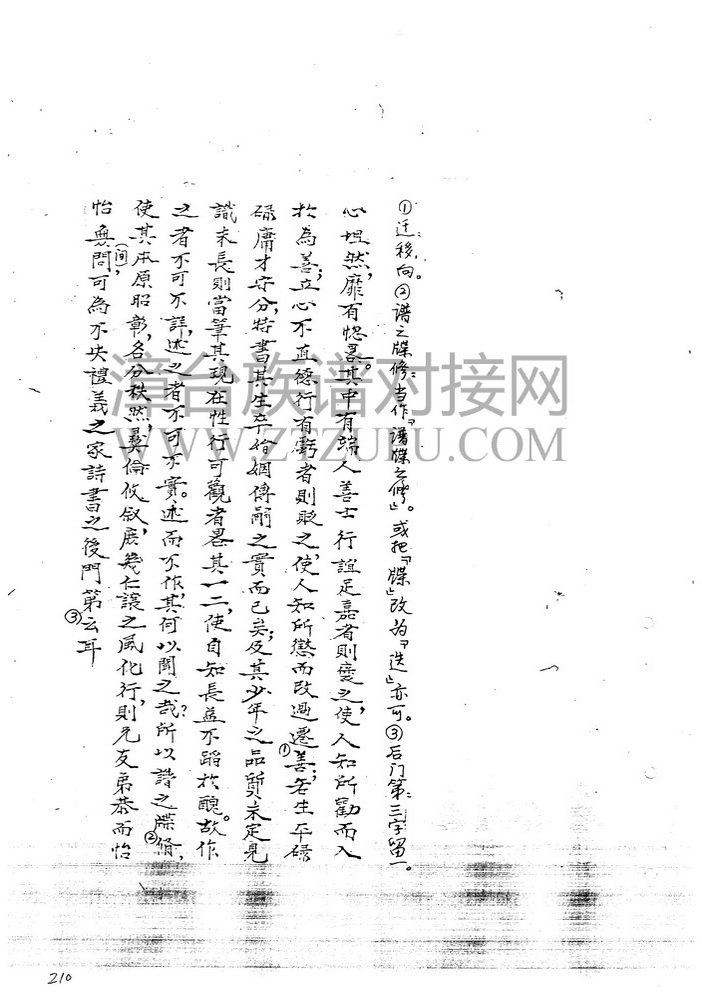 ①迁:移向。②谱之牒修:当作『谱牒之修』。或把『牒』改为『迭』亦可。③后门第:三字留一。
心坦然,靡有惚畧。其中有端人善士行誼足嘉者則褒之,使人知所勸而入
於為善;立心不直德行有虧者則貶之,使人知所懲而改過遷①善;若生平碌
碌庸才守分,特書其生卒婚姻傳嗣之實而已矣;及其少年之品質未定見
識未長則當筆其現在性行可觀者畧其一二,使自知長益不蹈於醜。故作
之者不可不詳,述之者不可不實。述而不作,其何以聞之哉?所以譜之牒脩②,
使其本原昭彰,各分秩然,彝倫攸叙,庶幾仁讓之風化行,則兄友弟恭而怡
怡無問(间),可為不失禮義之家詩書之後門第③云耳
漳台族谱对接网
WWW.ZTZUPU.COM
210